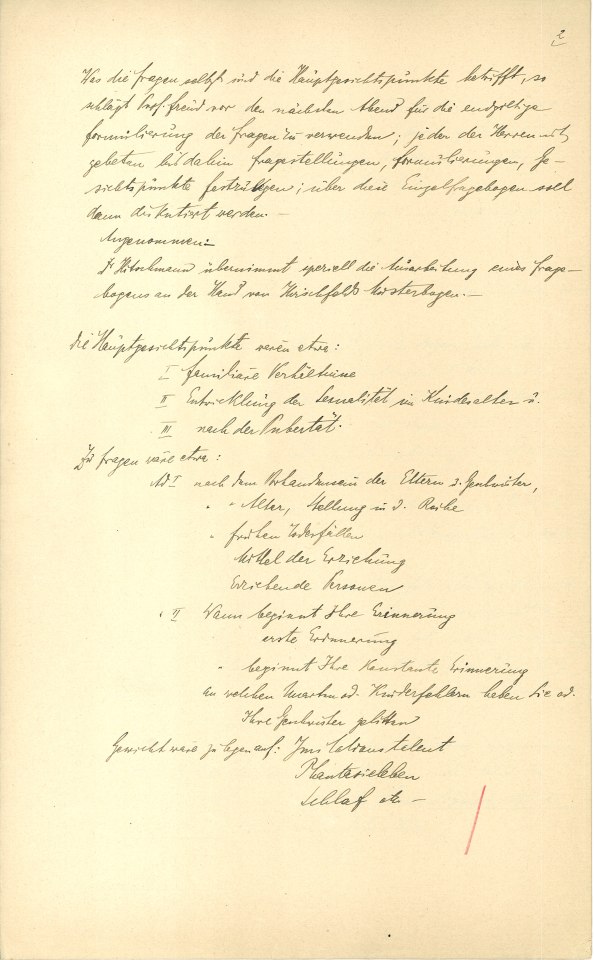 2
Was die Fragen selbst und die Hauptgesichtspunkte betrifft, so
schlägt Prof. Freud vor den nächsten Abend für die endgiltige
Formulierung der Fragen zu verwenden; jeder der Herren wird
gebeten bis dahin Fragestellungen, Formulierungen, Ge-
sichtspunkte festzulegen; über diese Einzelfragebogen soll
dann diskutiert werden.—
Angenommen.—
Dr Hitschmann übernimmt speziell die Ausarbeitung eines Frage-
bogens an der Hand von Hirschfelds Musterbogen.—
Die Hauptgesichtspunkte wären etwa:
I familiäre Verhältnisse
II Entwicklung der Sexualität im Kindesalter u.
III nach der Pubertät.
Zu fragen wäre etwa:
Ad I nach dem Vorhandensein der Eltern u. Geschwister,
" " Alter, Stellung in d. Reihe
" frühen Todesfällen
Mittel der Erziehung
Erziehende Personen
" II Wann beginnt Ihre Erinnerung
erste Erinnerung
" beginnt Ihre Konstante Erinnerung
an welchen Unarten od. Kinderfehlern haben Sie od.
Ihre Geschwister gelitten
Gewicht wäre zu legen auf: Imitationstalent
Phantasieleben
Schlaf etc —